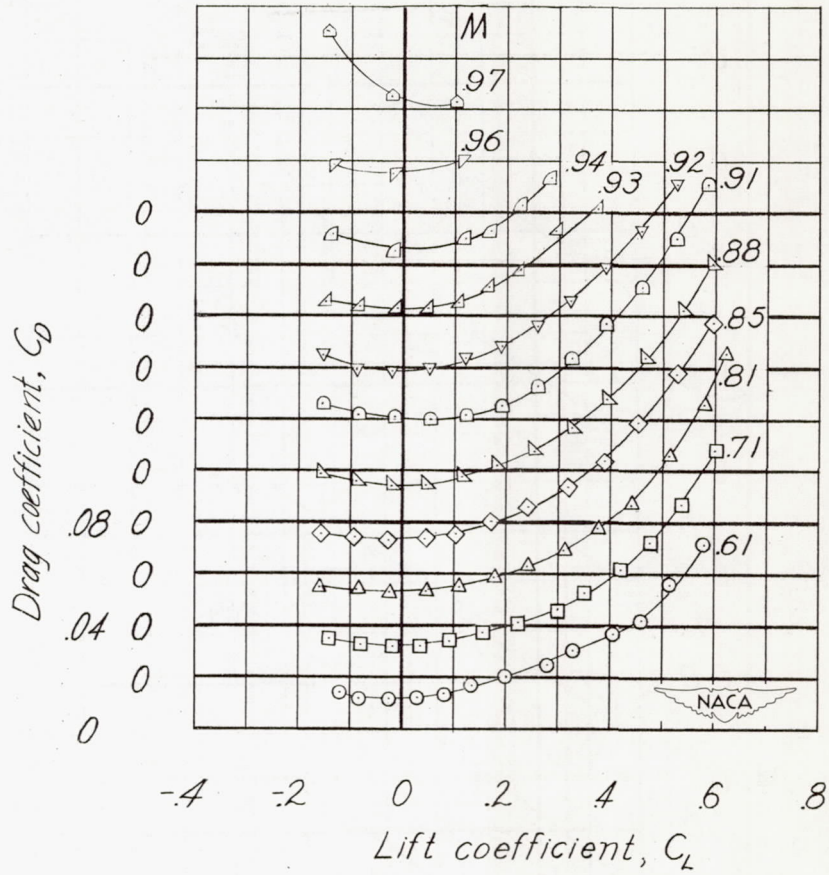 M
.97
.96
.94
.93
.92
.91
.88
.85
.81
.71
.61
0
0
0
0
0
0
.08 0
0
.04 0
0
0
Drag coefficient, C_D
NACA
-.4 -.2 0 .2 .4 .6 .8
Lift coefficient, C_L